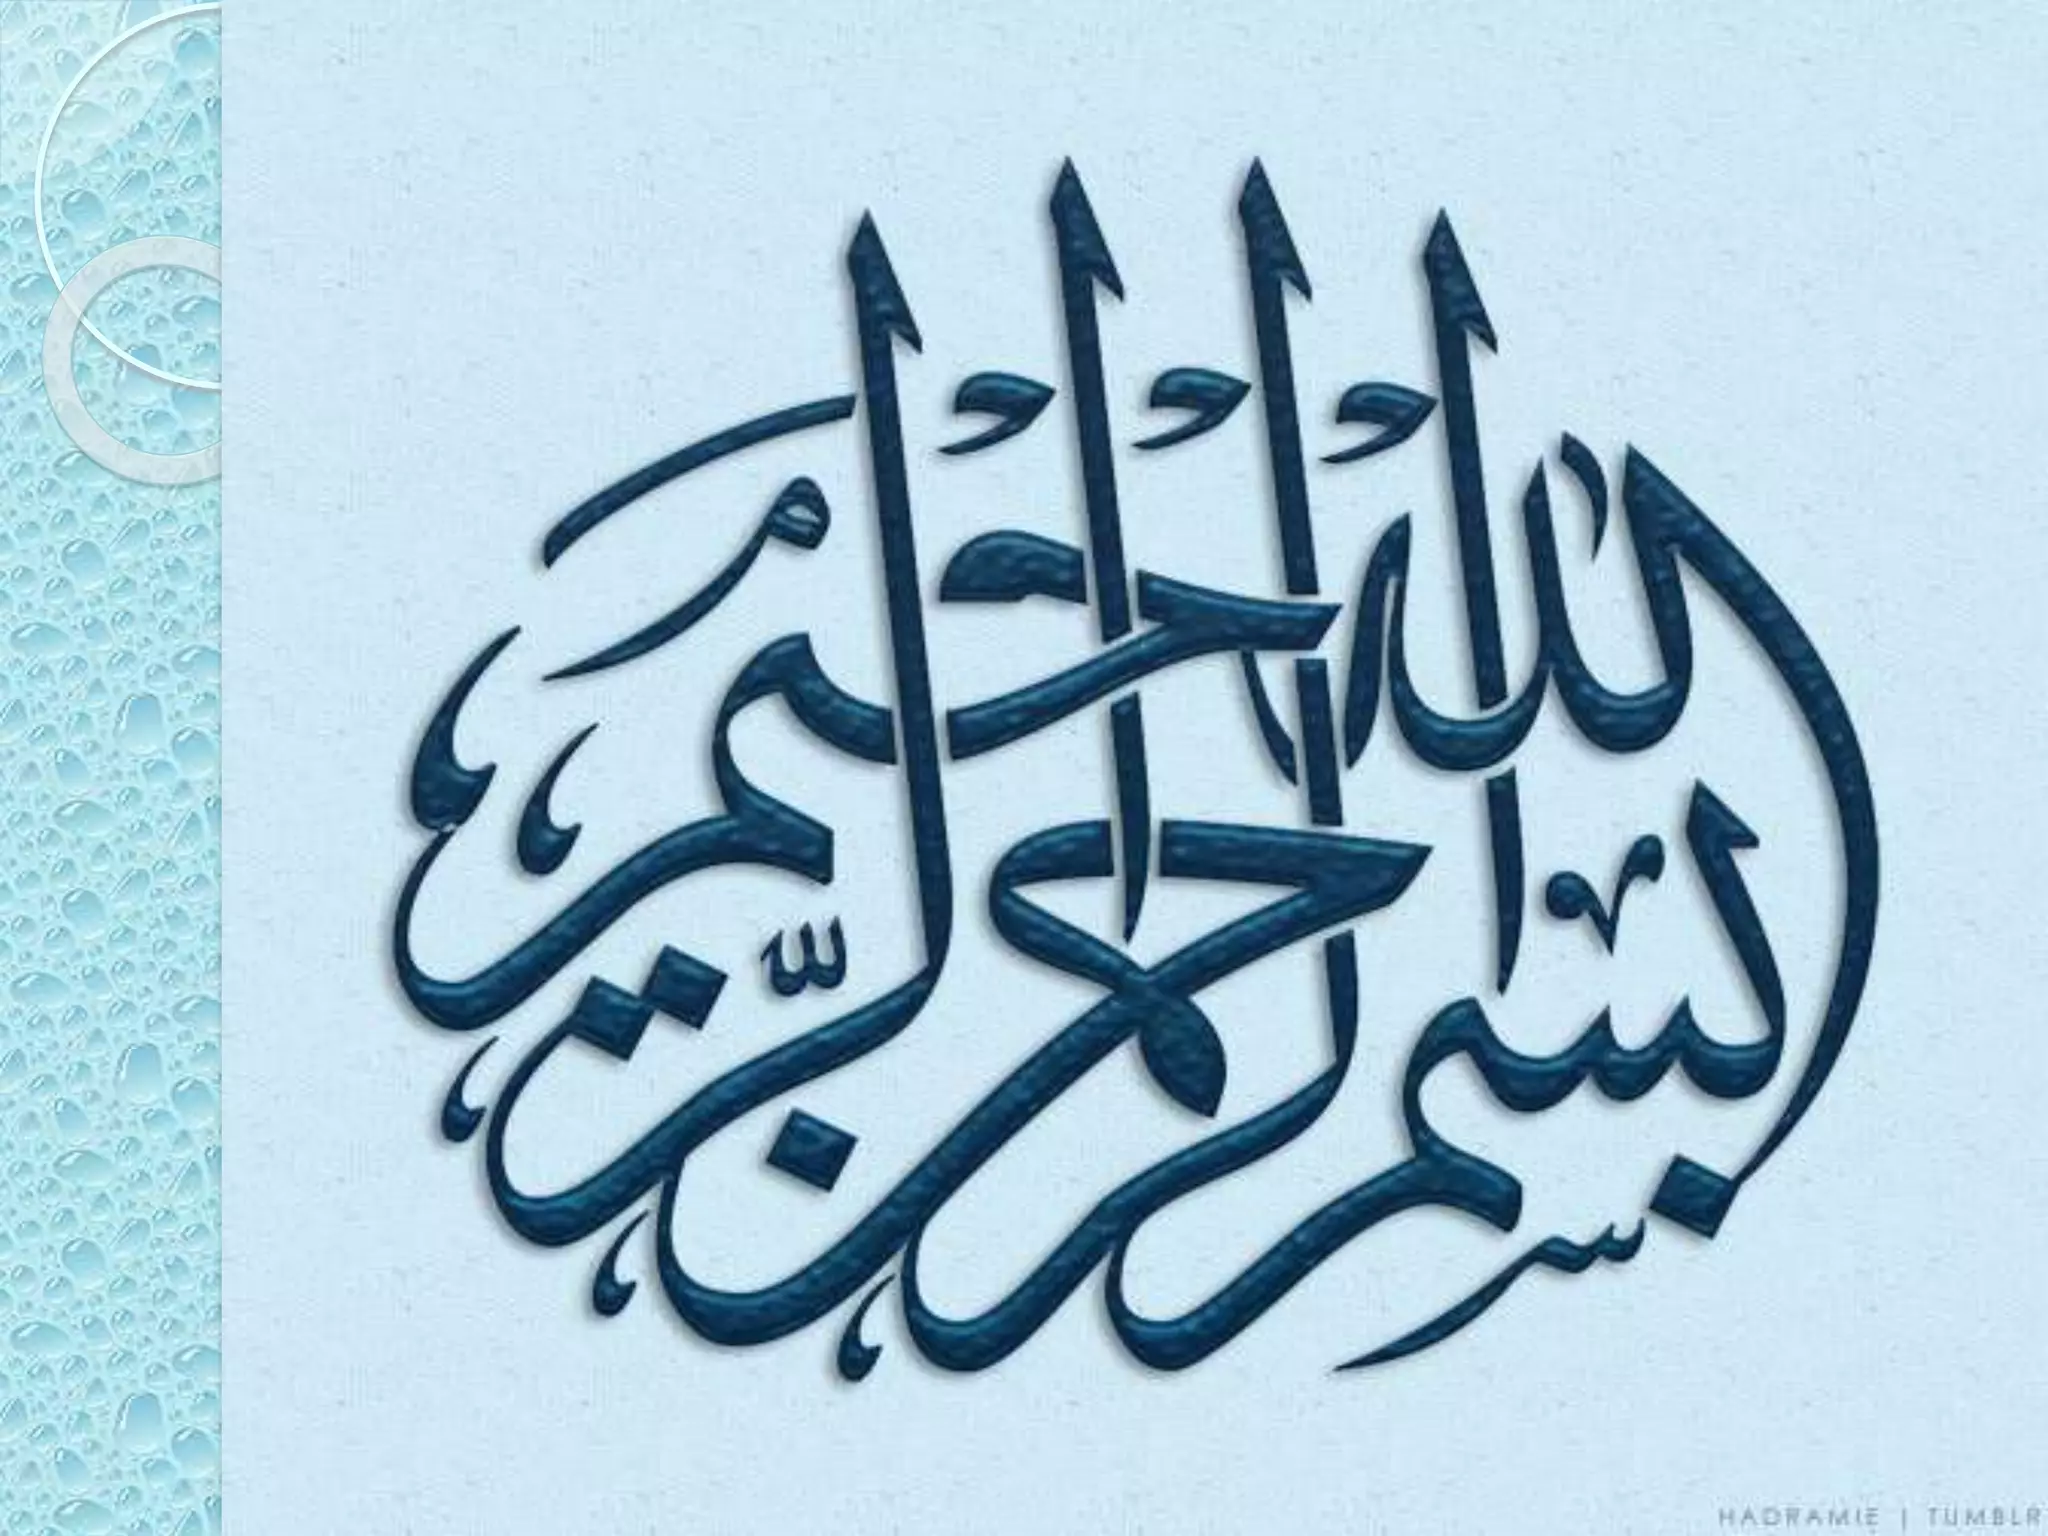 بسم الله الرحمن الرحيم
HADRAMIE | TUMBLR